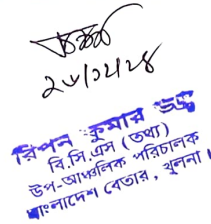 ২৮/১২/২৪
রিপন কুমার ভদ্র
বি.সি.এস (তথ্য)
উপ-আঞ্চলিক পরিচালক
বাংলাদেশ বেতার, খুলনা।